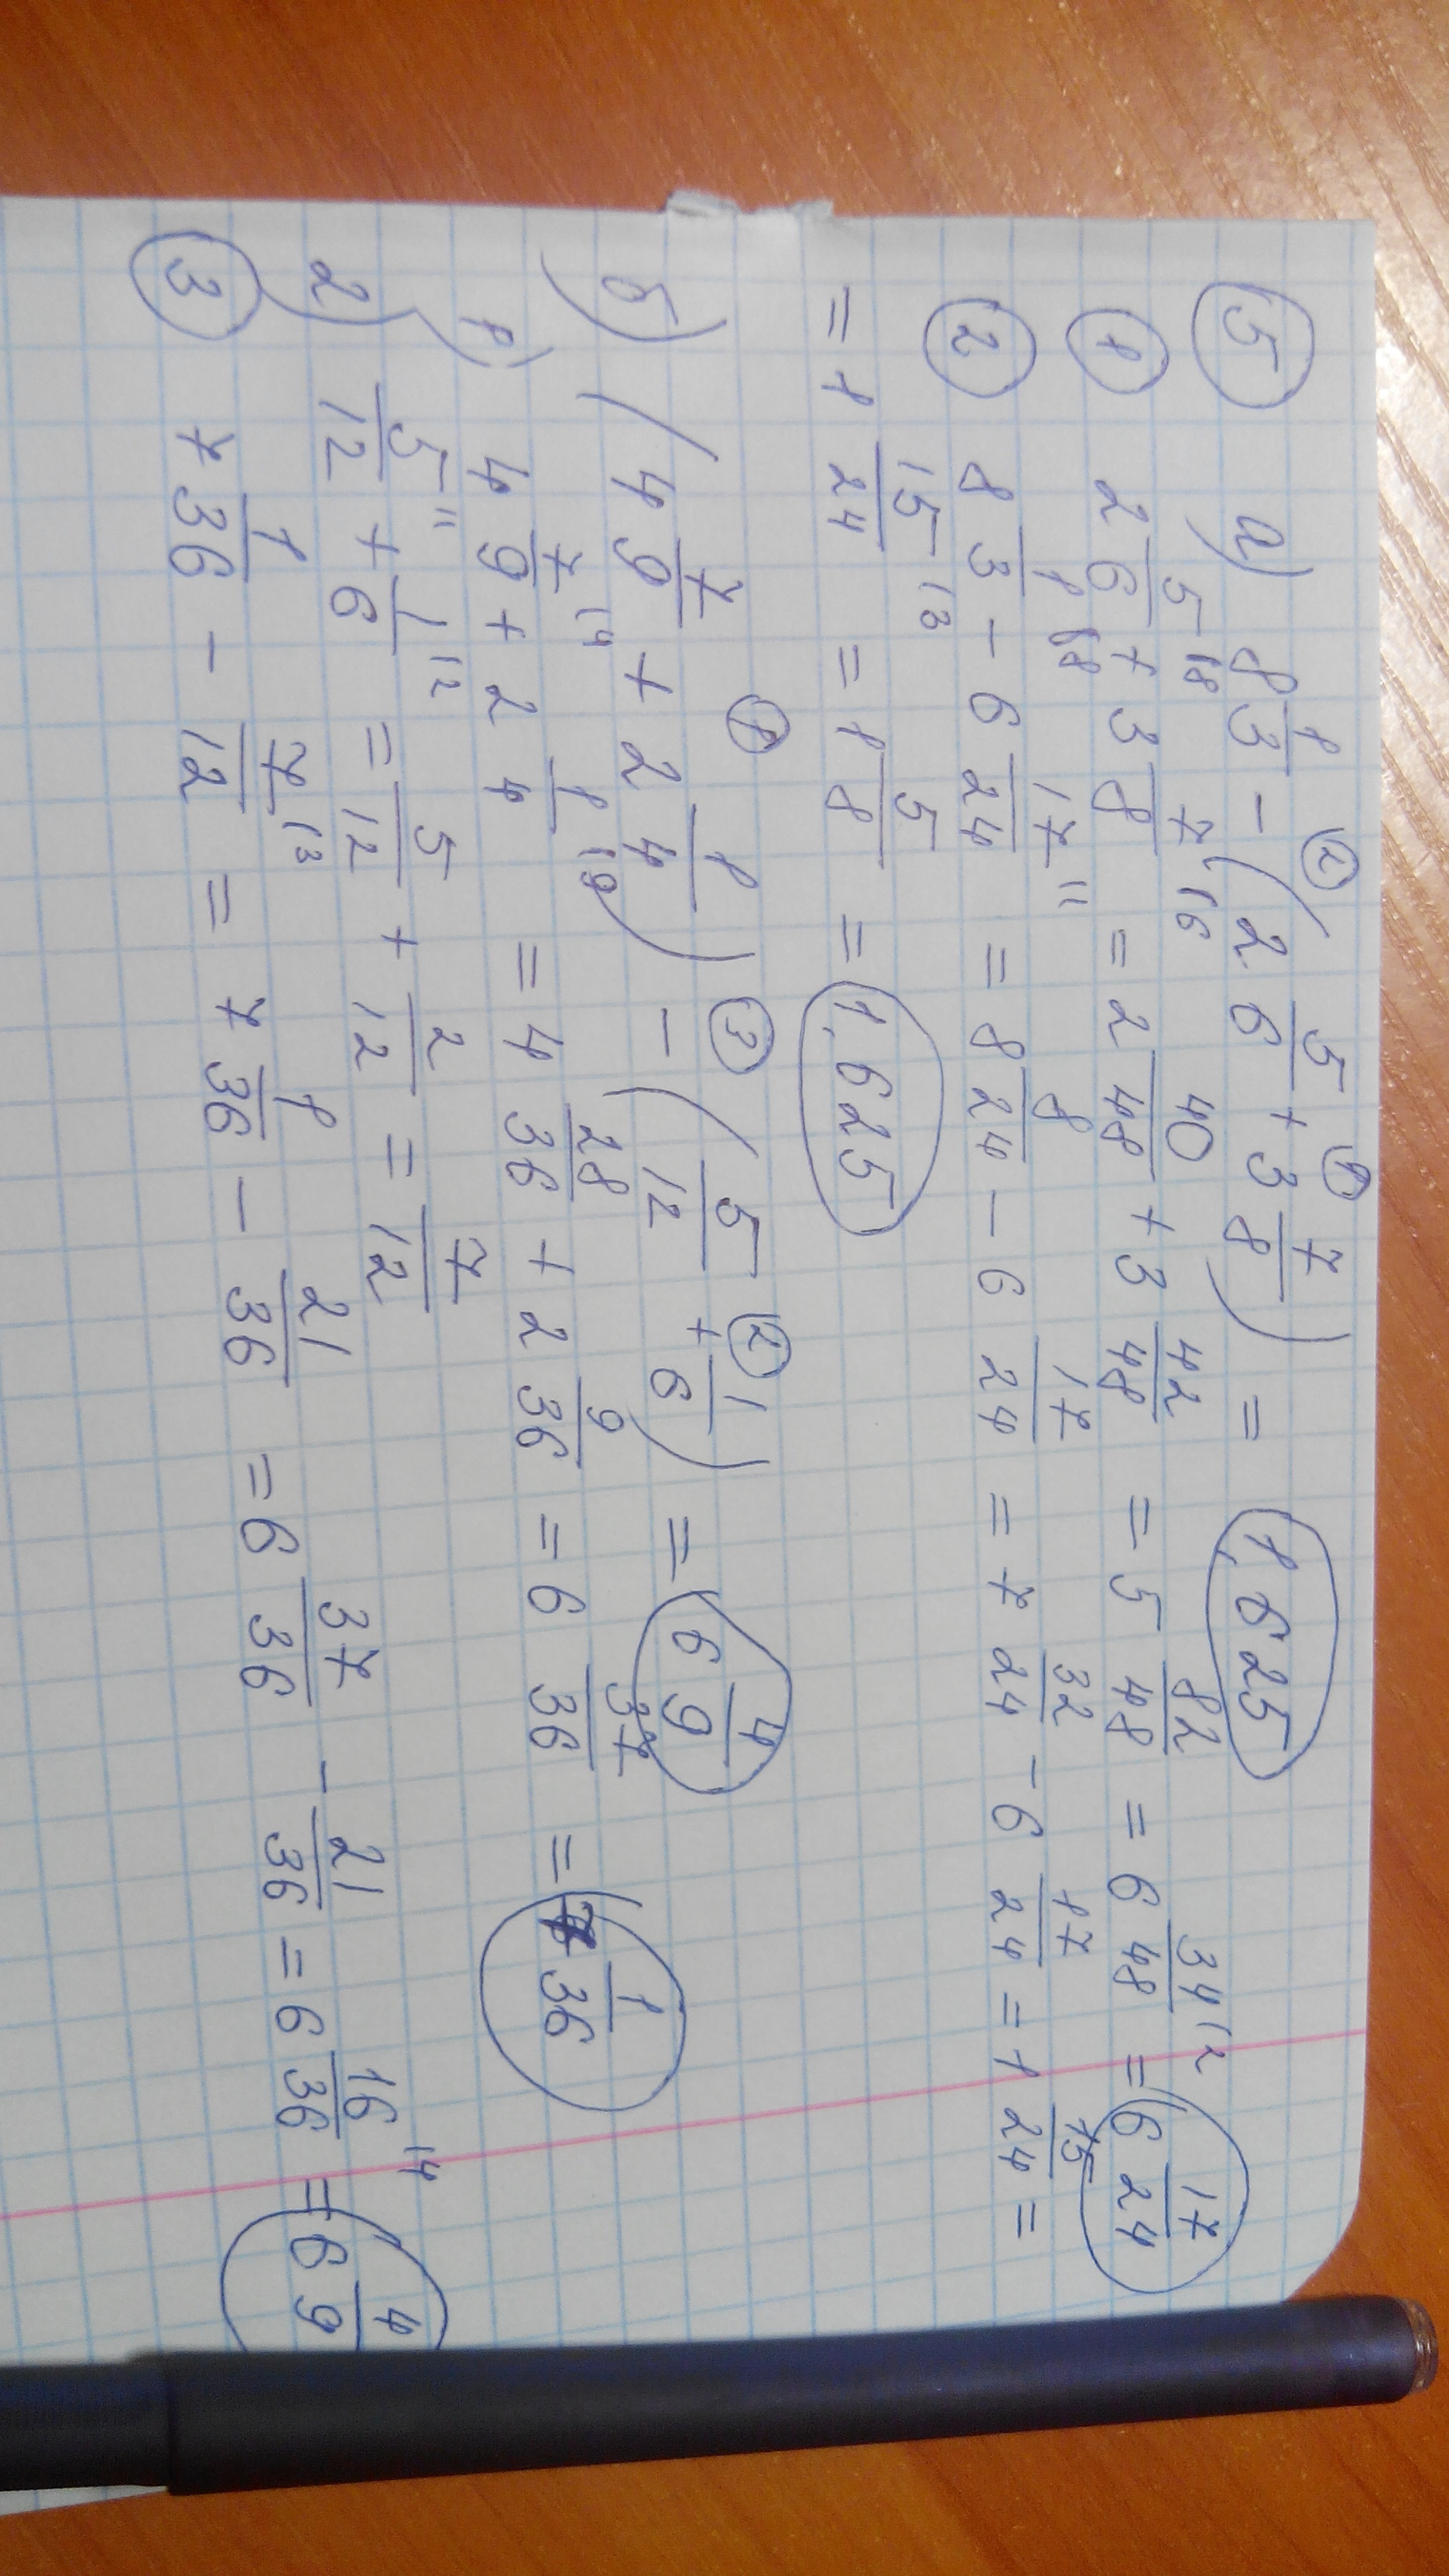 5 а) 8 1/3 - (2 5/6 + 3 7/8) = 1,625
1 2 5/6 + 3 7/8 = 2 40/48 + 3 42/48 = 5 82/48 = 6 34/48 = 6 17/24
2 8 1/3 - 6 17/24 = 8 8/24 - 6 17/24 = 7 32/24 - 6 17/24 = 1 15/24 =
= 1 15/24 = 1 5/8 = 1,625
б) (4 7/9 + 2 1/4) - (5/12 + 1/6) = 6 4/9
1) 4 7/9 + 2 1/4 = 4 28/36 + 2 9/36 = 6 37/36 = 7 1/36
2) 5/12 + 1/6 = 5/12 + 2/12 = 7/12
3 7 1/36 - 7/12 = 7 1/36 - 21/36 = 6 37/36 - 21/36 = 6 16/36 = 6 4/9